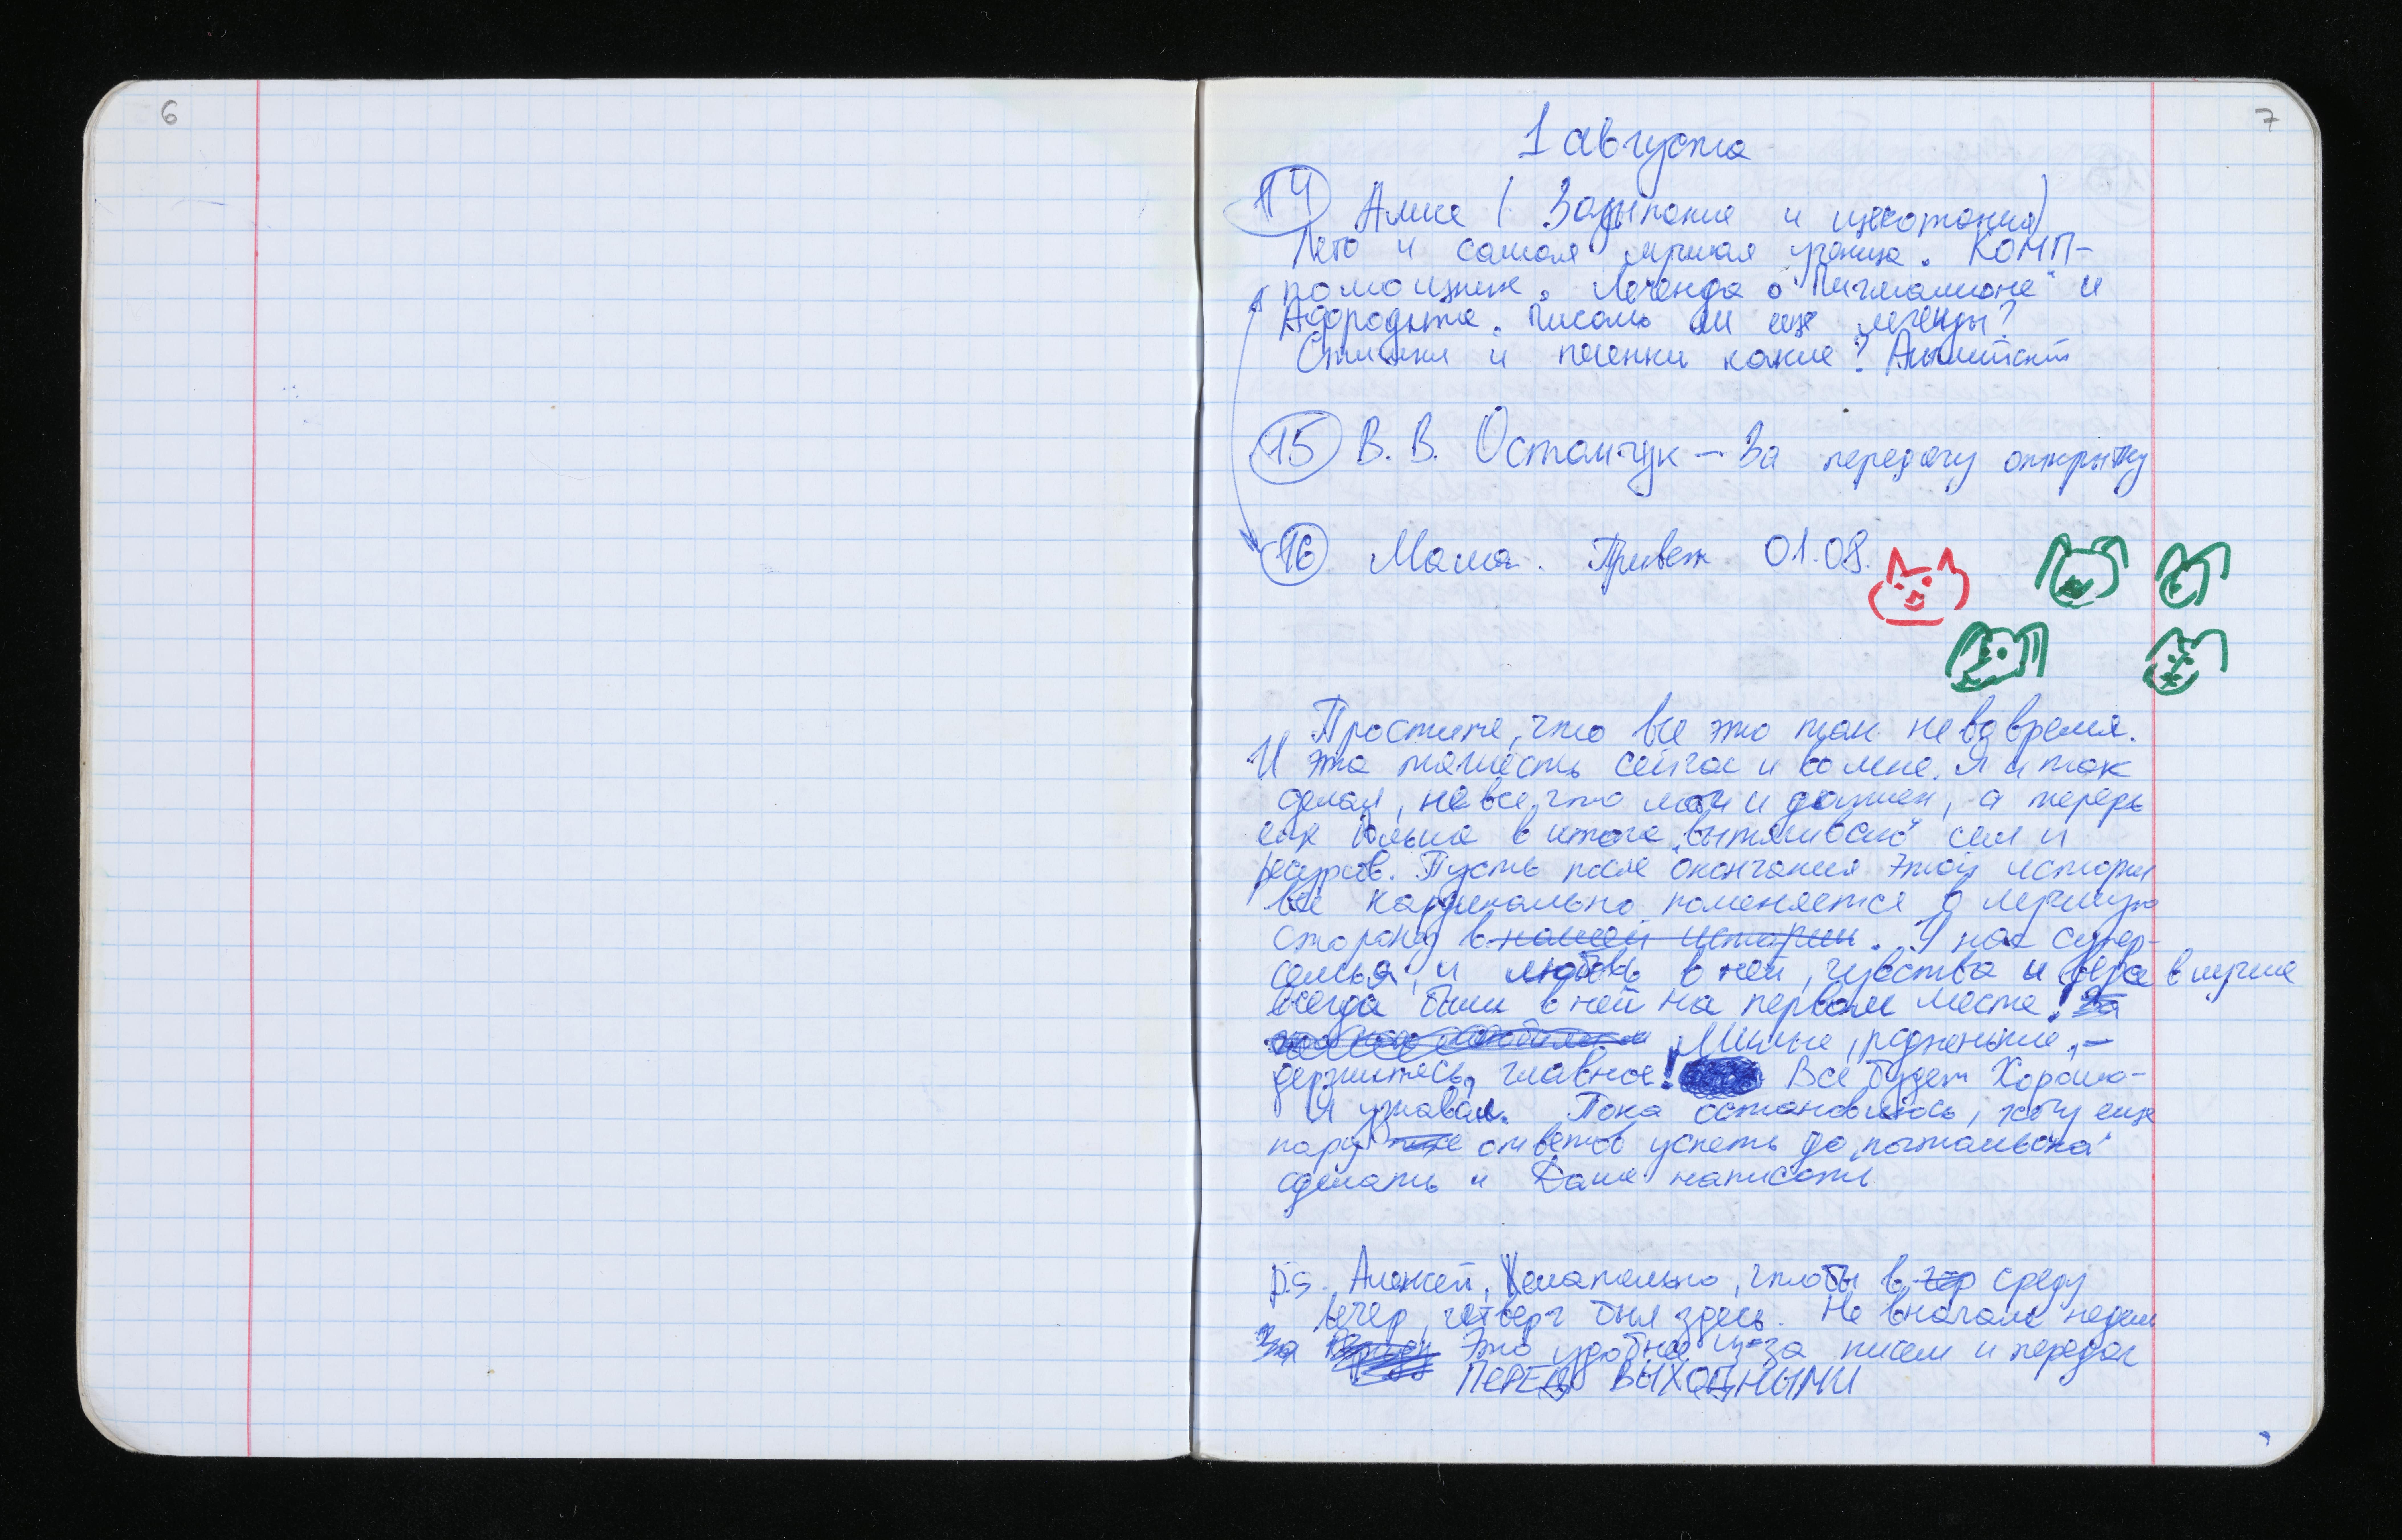 6
7
1 августа
14 Алисе (Задыпания и щекотания)
Лето и самая лучшая ученица. КОМП-
помощник. Легенда о "Пигмалионе" и
Афродите. Писать ли еще легенды?
Стишки и песенки какие? Английский
15 В. В. Остапчук — За передачу открытку
16 Мама. Привет 01.08.
Простите, что все это так не вовремя.
И эта тяжесть сейчас и во мне. Я и так
делал, не все, что мог и должен, а теперь
еще больше в итоге "вытягиваю" сил и
ресурсов. Пусть после окончания этой истории
все кардинально поменяется в лучшую
сторону в нашей истории. У нас супер-
семья, и любовь в ней, чувства и вера в лучшее
всегда были в ней на первом месте! За
Милые, родненькие, —
держитесь, главное! Все будет Хорошо-
Я узнавал. Пока остановлюсь, хочу еще
пару ответов успеть до "почтальона"
сделать и Даше написать
P.S. Алексей, Желательно, чтобы в чер среду
вечер, четверг был здесь. Не вначале недели
За Это удобнее из-за писем и передач
ПЕРЕД ВЫХОДНЫМИ